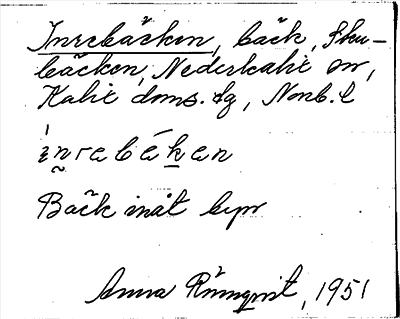 Inrebäcken, bäck, Sku-
bäcken, Nederkalix sn,
Kalix doms. dg, Nordb. l
ìnrebéken
Bäck inåt byn
Anna Rönnqvist, 1951